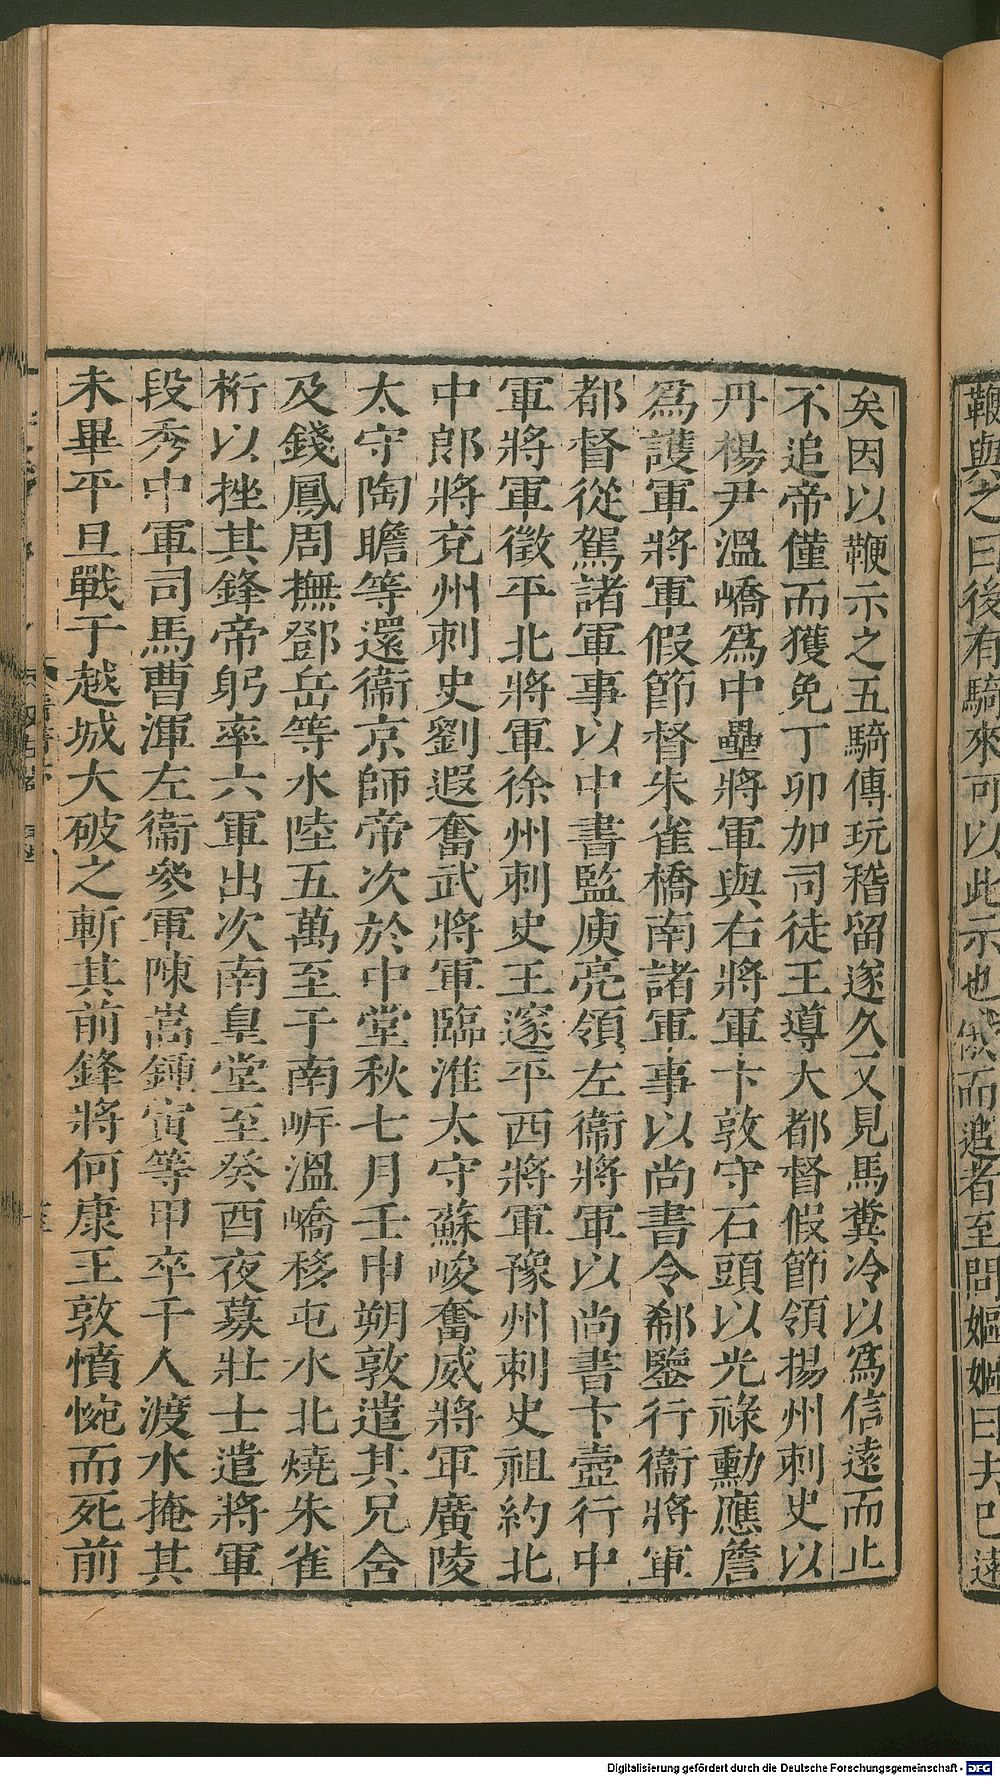 鞭與之曰後有騎來可以此示也俄而追者至問嫗嫗曰去已遠
矣因以鞭示之五騎傳玩稽留遂久又見馬糞冷以為信遠而止
不追帝僅而獲免丁卯加司徒王導大都督假節領揚州刺史以
丹楊尹溫嶠為中壘將軍與右將軍卞敦守石頭以光祿勳應詹
為護軍將軍假節督朱雀橋南諸軍事以尚書令郗鑒行衞將軍
都督從駕諸軍事以中書監庾亮領左衞將軍以尚書卞壼行中
軍將軍徵平北將軍徐州刺史王邃平西將軍豫州刺史祖約北
中郎將兗州刺史劉遐奮武將軍臨淮太守蘇峻奮威將軍廣陵
太守陶瞻等還衞京師帝次於中堂秋七月壬申朔敦遣其兄含
及錢鳳周撫鄧岳等水陸五萬至于南岸溫嶠移屯水北燒朱雀
桁以挫其鋒帝躬率六軍出次南皇堂至癸酉夜募壯士遣將軍
段秀中軍司馬曹渾左衞參軍陳嵩鍾寅等甲卒千人渡水掩其
未畢平旦戰于越城大破之斬其前鋒將何康王敦憤惋而死前
Digitalisierung gefördert durch die Deutsche Forschungsgemeinschaft - DFG